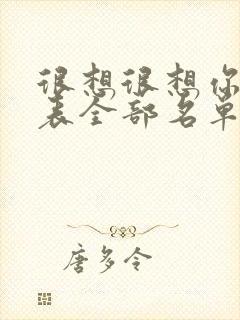 很想很想你
表全部名单
唐多令